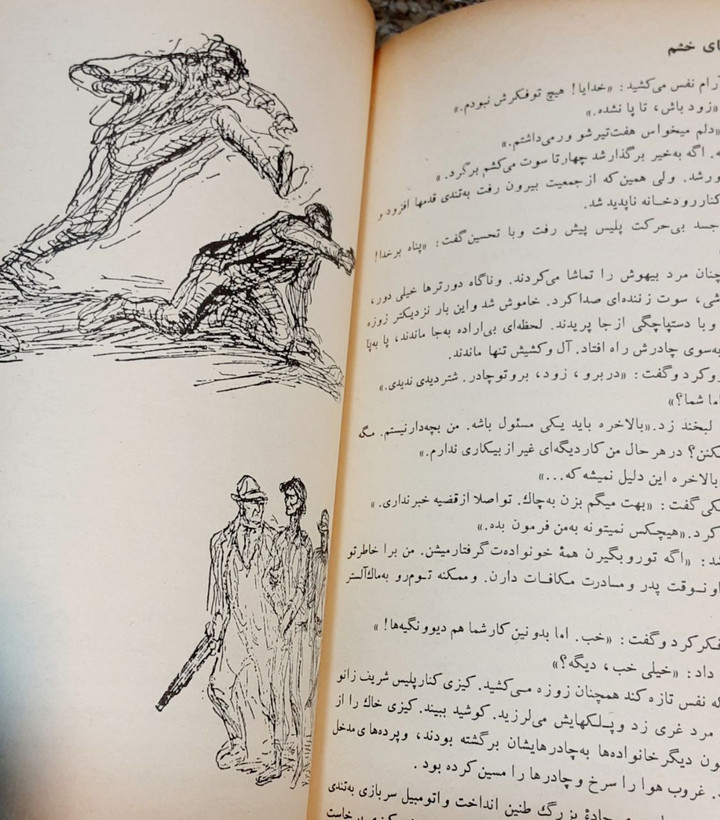 ای خشم
رام نفس می‌کشید: «خدایا! هیچ توفکرش نبودم.»
«زود باش، تا پا نشده.»
«دلم میخواس هفت‌تیرشو ورمی‌داشتم.»
ه. اگه به‌خیر برگذار شد چهار تا سوت می‌کشم برگرد.»
ورشد. ولی همین‌که از جمعیت بیرون رفت به‌تندی قدمها افزود و
کنار رودخانه ناپدید شد.
جسد بی‌حرکت پلیس پیش رفت و با تحسین گفت: «پناه برخدا!
چنان مرد بیهوش را تماشا می‌کردند. وناگاه دورترها خیلی دور،
شی، سوت زننده‌ای صدا کرد. خاموش شد واین بار نزدیکتر زوزه
و با دستپاچگی از جا پریدند. لحظه‌ای بی‌اراده به‌جا ماندند، پا به‌پا
به‌سوی چادرش راه افتاد. آل وکشیش تنها ماندند.
وکرد وگفت: «دربرو، زود، بروتوچادر. شتر دیدی ندیدی.»
ما شما؟»
لبخند زد. «بالاخره باید یکی مسئول باشه. من بچه‌دار نیستم. مگه
کنن؟ در هر حال من کار دیگه‌ای غیر از بیکاری ندارم.»
بالاخره این دلیل نمیشه که...»
کی گفت: «بهت میگم بزن به‌چاك. تو اصلا از قضیه خبر نداری.»
کرد. «هیچکس نمیتونه به‌من فرمون بده.»
شد: «اگه تورو بگیرن همهٔ خونواده‌ت گرفتار میشن. من برا خاطرتو
او نوقت پدر و مسادرت مکافات دارن. وممکنه توم‌رو به‌ماك‌آلستر
فکر کرد وگفت: «خب. اما بدونین کار شما هم دیوونگیه‌ها!»
داد: «خیلی خب، دیگه؟»
که نفس تازه کند همچنان زوزه می‌کشید. کیزی کنار پلیس شریف زانو
مرد غری زد و پلکهایش می‌لرزید. کوشید ببیند. کیزی خاك را از
ون دیگر خانواده‌ها به‌چادرهایشان برگشته بودند، وپرده‌های مدخل
. غروب هوا را سرخ وچادرها را مسین کرده بود.
جادهٔ بزرگ طنین انداخت واتومبیل سربازی به‌تندی
کیزی برخاست